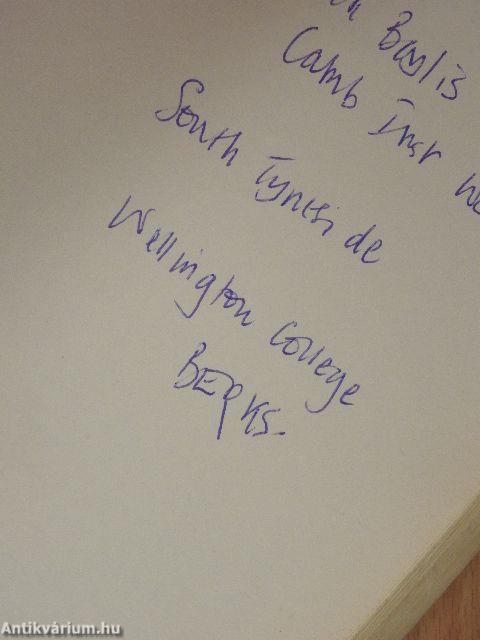 Baylis
Camb Inst
South Tyneside
Wellington College
BERKS.
Antikvárium.hu